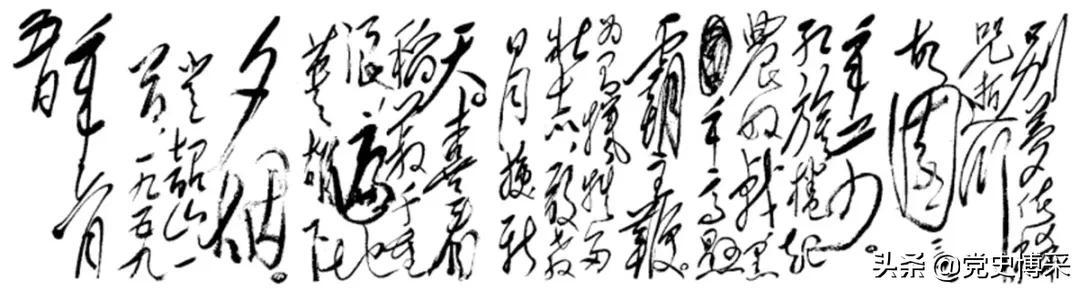 别梦依稀
咒逝川
故园三
十二年前。
红旗捲起
農奴戟黑
手高悬
霸主鞭。
为有牺牲多
壮志敢教
日月换新
天。喜看
稻菽千重
浪
英雄下
夕烟。
登韶山一
首,一九五九
年六月
头条 @党史博采